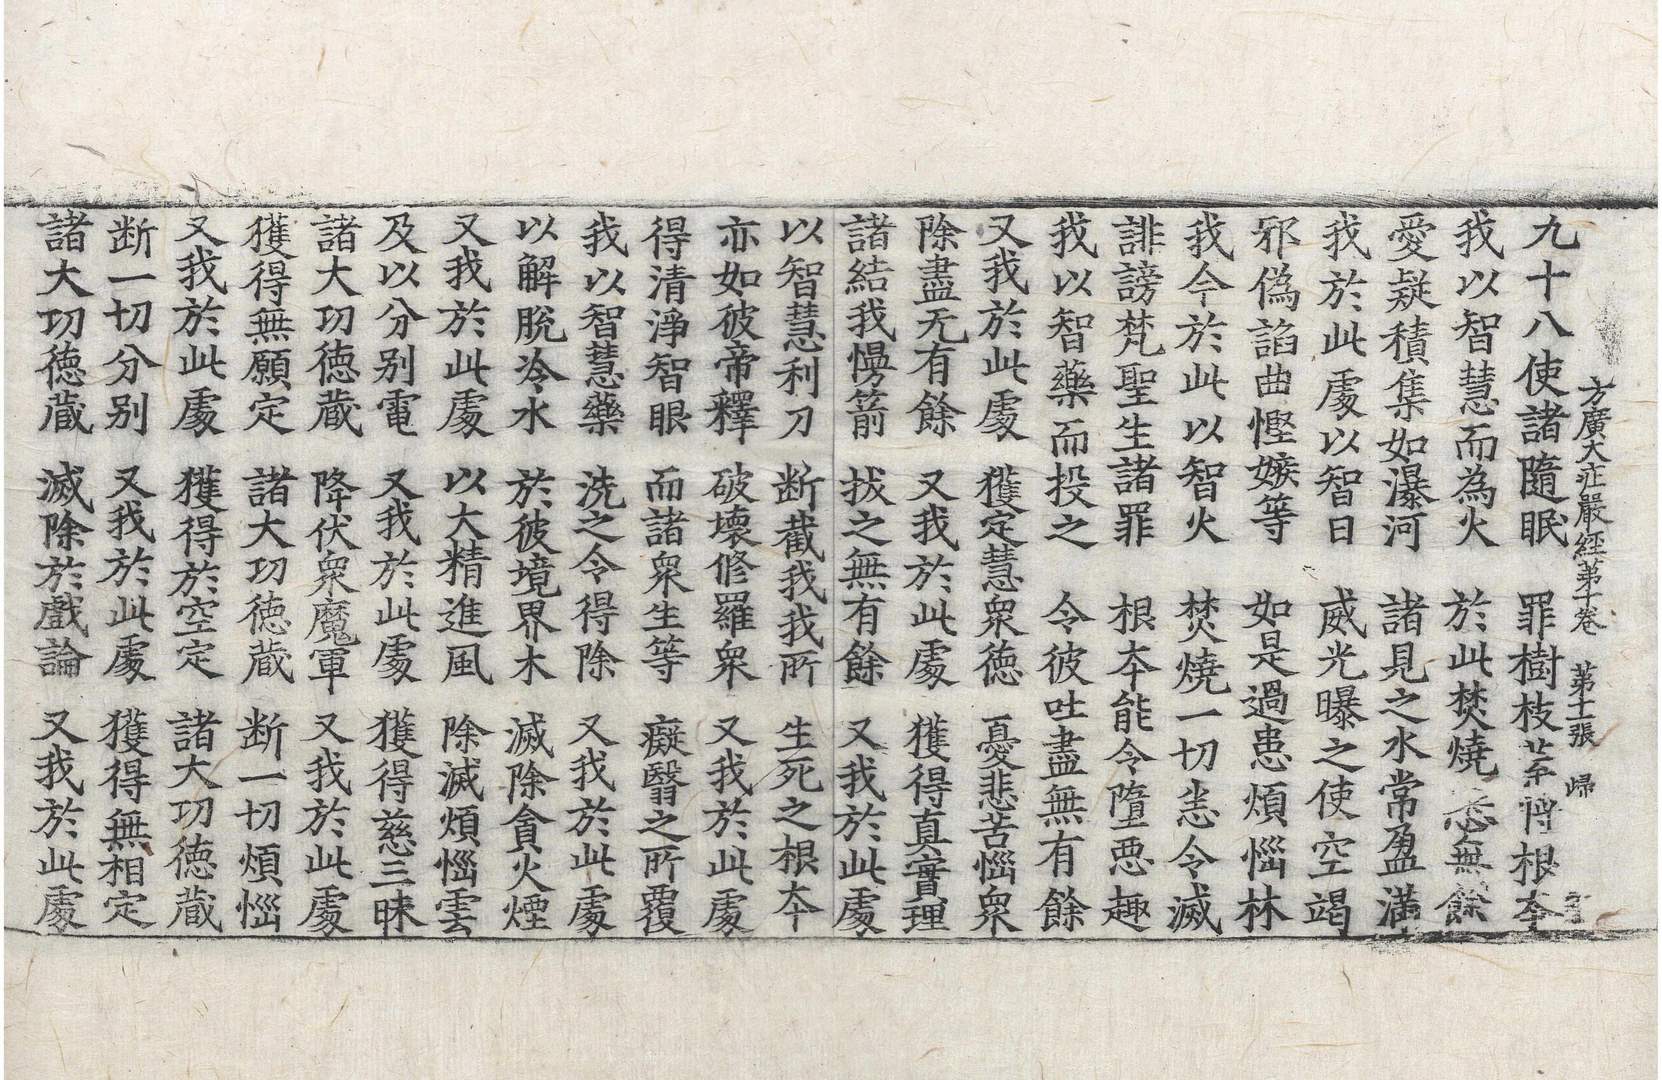 方廣大莊嚴經苐十卷 苐十張 歸
九十八使諸隨眠 罪樹枝 根夲
我以智慧而為火 於此焚燒悉無餘
愛疑積集如瀑河 諸見之水常盈滿
我於此處以智日 威光曝之使空竭
邪偽諂曲慳嫉等 如是過患煩惱林
我今於此以智火 焚燒一切恙令滅
誹謗梵聖生諸罪 根夲能令墮惡趣
我以智藥而投之 令彼吐盡無有餘
又我於此處 獲定慧衆徳 憂悲苦惱衆
除盡无有餘 又我於此處 獲得真實理
諸結我慢箭 拔之無有餘 又我於此處
以智慧利刀 断截我我所 生死之根夲
亦如彼帝釋 破壞修羅衆 又我於此處
得清淨智眼 而諸衆生等 癡翳之所覆
我以智慧藥 洗之令得除 又我於此處
以解脫冷水 於彼境界木 滅除貪火煙
又我於此處 以大精進風 除滅煩惱雲
及以分别電 又我於此處 獲得慈三昧
諸大功徳蔵 降伏衆魔軍 又我於此處
獲得無願定 諸大功徳蔵 断一切煩惱
又我於此處 獲得於空定 諸大功徳蔵
断一切分别 又我於此處 獲得無相定
諸大功徳蔵 滅除於戲論 又我於此處